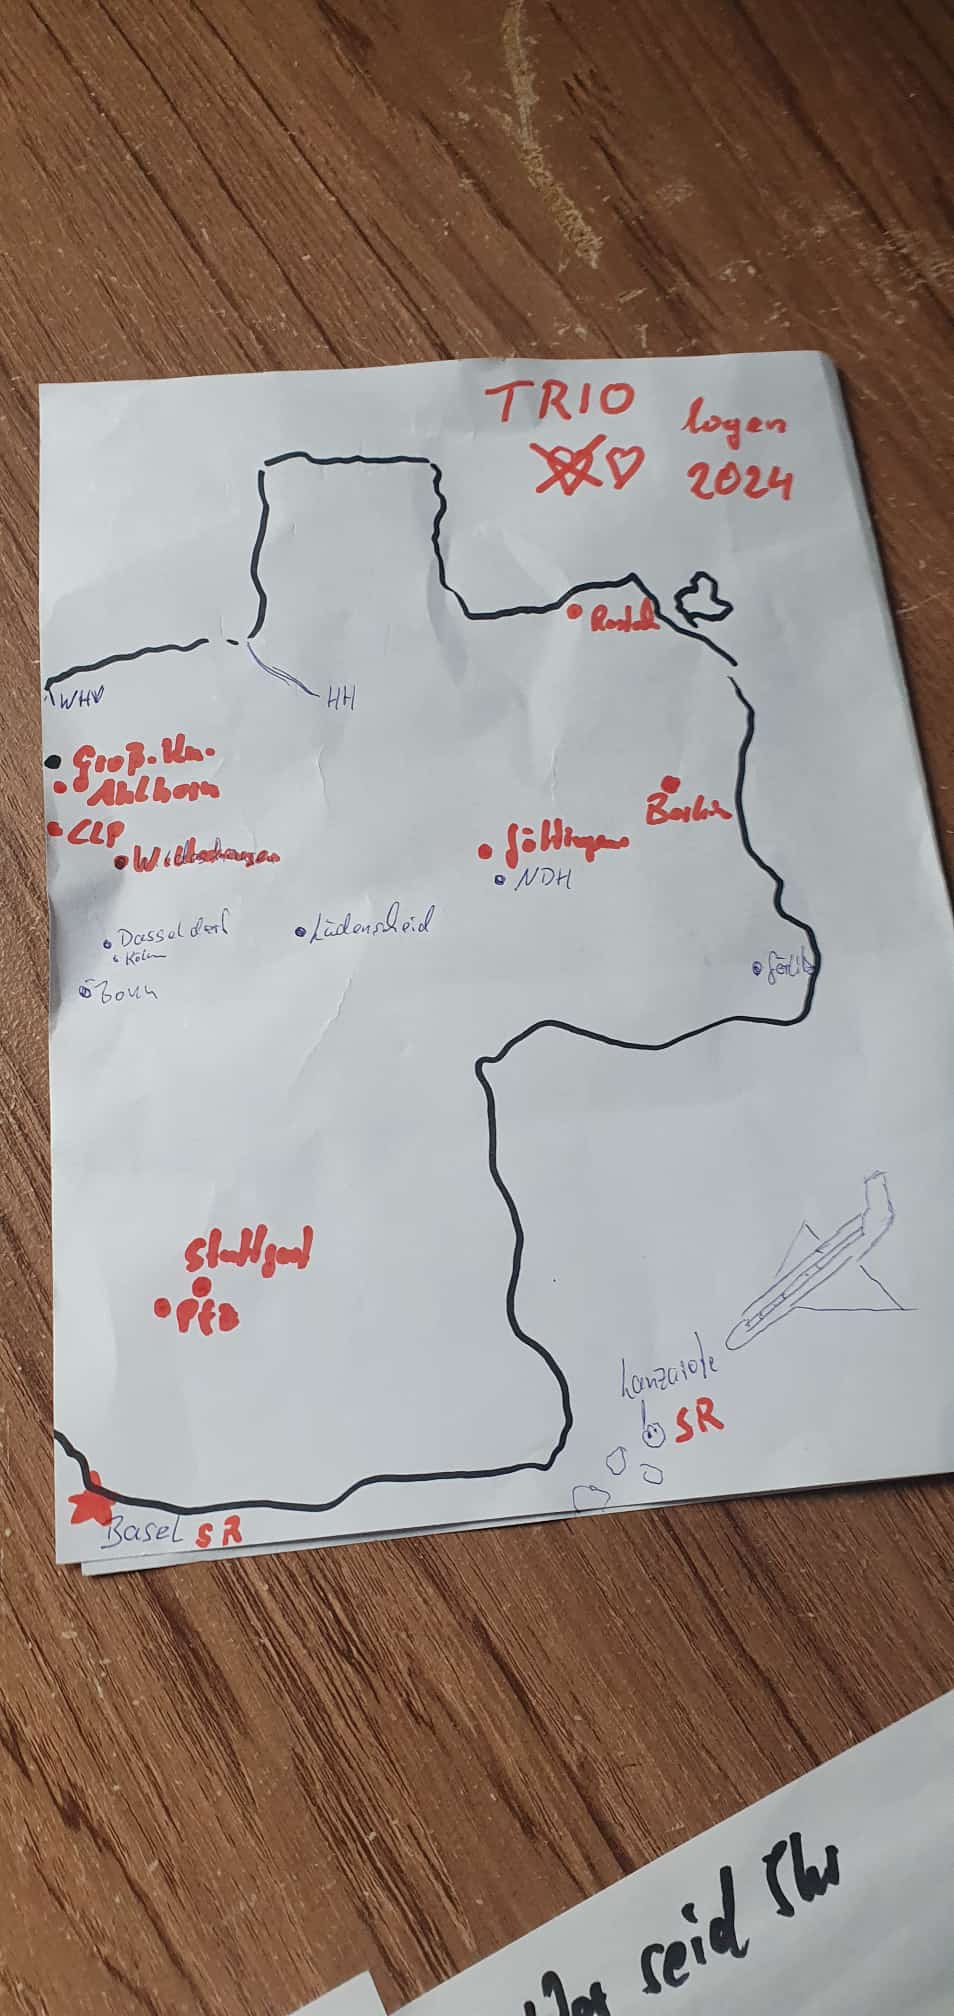 TRIO
logen
2024
Rostock
WHV
HH
Groß. Kn.
Ahlhorn
CLP
Wildeshausen
Berlin
Göttingen
NDH
Dasseldorf
Köln
Bonn
Lüdenscheid
Görlitz
Stuttgart
Lanzarote
SR
Basel SR
seid Ihr